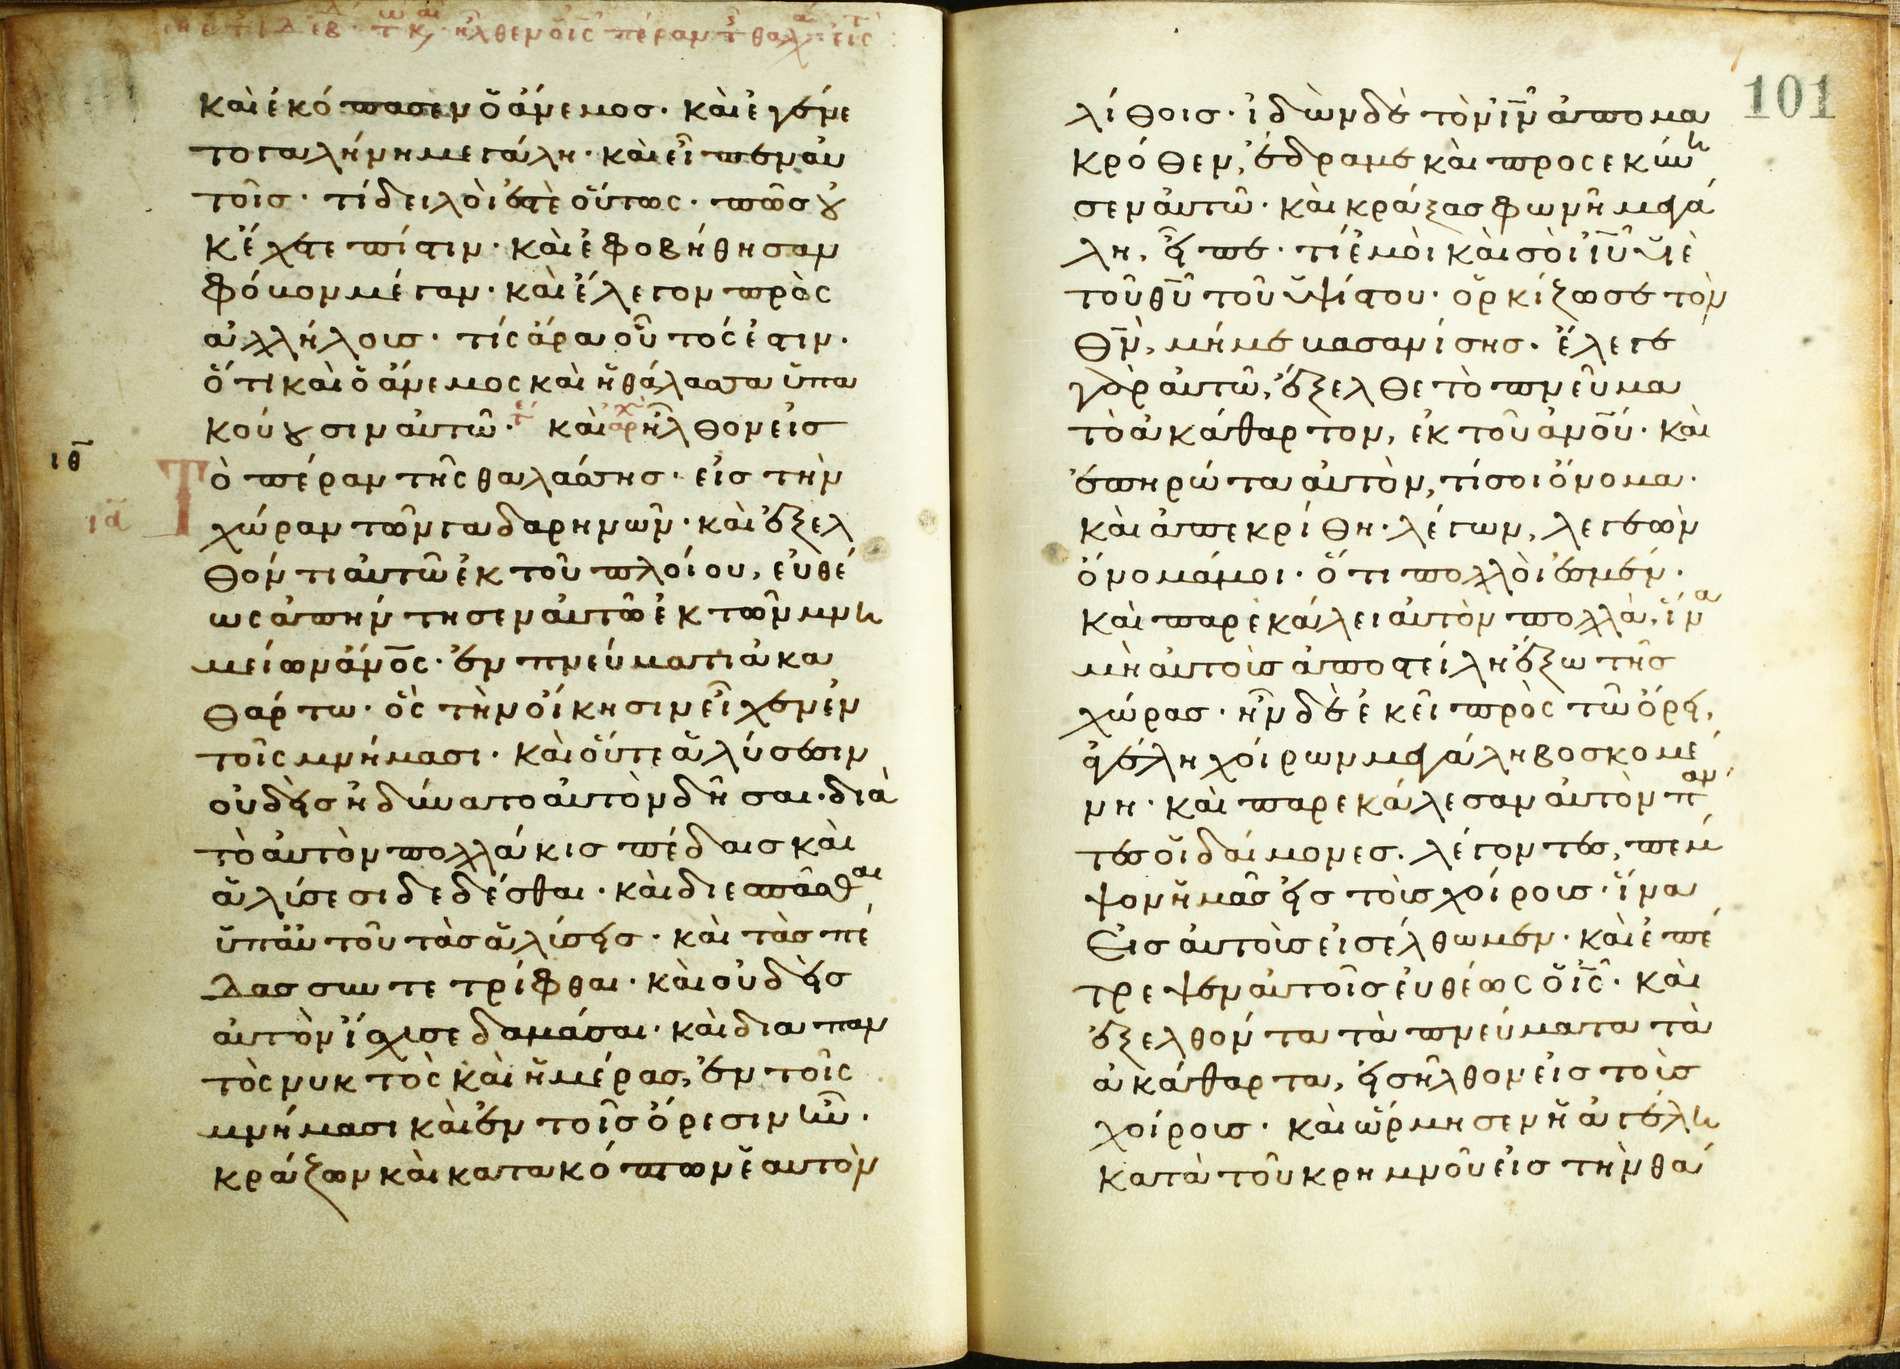 ἦλθεν ὁ ις πέραν τ θαλ εις
και εκόπασεν ὁ άνεμοσ· και εγένε
το γαλήνη μεγάλη· και εἶπεν αυ
τοῖσ· τί δειλοί εστὲ οὕτως· πῶσ ου
κ ἔχετε πίστιν· και εφοβήθησαν
φόβον μέγαν· και έλεγον προς
αλλήλουσ· τίς άρα οὗτός εστιν·
ὅτι και ὁ άνεμος και ἡ θάλασσα ὑπα
κούουσιν αυτῶ· τε και αρχ ἦλθον εισ
ιθ
Το πέραν της θαλάσσησ· εισ την
ια
χώραν των γαδαρηνῶν· και εξελ
θόντι αυτῶ εκ τοῦ πλοίου, ευθέ
ως απήντησεν αυτῶ εκ των μνη
μείων ανος· εν πνεύματι ακα
θάρτω· ὃς την οίκησιν εἶχεν εν
τοῖς μνήμασι· και ούτε ἁλύσεσιν
ουδεὶσ ηδύνατο αυτον δῆσαι· διὰ
το αυτον πολλάκισ πέδαισ και
ἁλύσεσι δεδέσθαι· και διεσπᾶσθαι
ὑπ αυτοῦ τὰσ ἁλύσεισ· και τὰσ πέ
δασ συντετρίφθαι· και ουδεὶσ
αυτον ίσχυσε δαμάσαι· και δια παν
τὸς νυκτὸς και ἡμέρασ, εν τοῖς
μνήμασι και εν τοῖσ όρεσιν ἦν·
κράζων και κατακόπτων ἑαυτον
101
λίθοισ· ιδὼν δε τον ιν απο μα
κρόθεν, έδραμε και προσεκύνη
σεν αυτῶ· και κράξασ φωνῆ μεγά
λη, εἶπε· τί εμοὶ και σοὶ ιυ υἱὲ
τοῦ θυ τοῦ ὑψίστου· ὁρκίζω σε τον
θν, μή με βασανίσησ· έλεγε
γαρ αυτῶ, έξελθε το πνεῦμα
το ακάθαρτον, εκ τοῦ ανου· και
επηρώτα αυτον, τί σοι όνομα·
και απεκρίθη· λέγων, λεγεὼν
όνομά μοι· ὅτι πολλοί εσμεν·
και παρεκάλει αυτον πολλὰ, ἵνα
μὴ αυτοὺσ αποστείλη έξω τῆσ
χώρασ· ἦν δε εκεῖ προς τῶ όρει,
αγέλη χοίρων μεγάλη βοσκομέ
νη· και παρεκάλεσαν αυτον πάν
τεσ οἱ δαίμονεσ· λέγοντεσ, πέμ
ψον ἡμᾶσ εισ τοὺσ χοίρουσ· ἵνα
Εισ αυτοὺσ εισέλθωμεν· και επέ
τρεψεν αυτοῖσ ευθέως ὁ ις· και
εξελθόντα τὰ πνεύματα τὰ
ακάθαρτα, εισῆλθον εισ τοὺσ
χοίρουσ· και ὥρμησεν ἡ αγέλη
κατὰ τοῦ κρημνοῦ εισ την θά